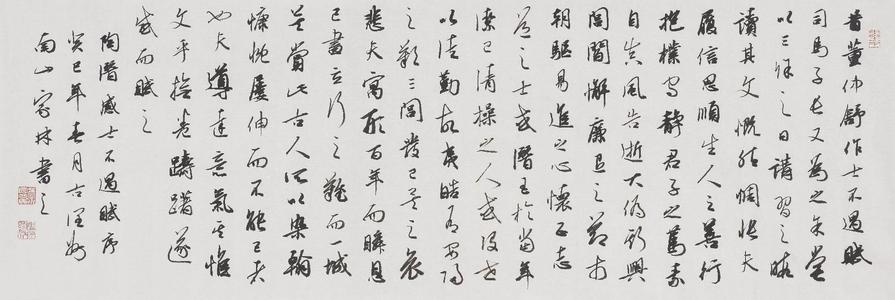 昔董仲舒作士不遇賦
司馬子長又為之余嘗
以三餘之日講習之暇
讀其文慨然惆悵夫
履信思順生人之善行
抱樸守靜君子之篤素
自真風告逝大偽斯興
閭閻懈廉退之節市
朝驅易進之心懷正志
道之士或潛玉於當年
潔己清操之人或沒世
以徒勤故夷皓有安歸
之歎三閭發已矣之哀
悲夫寓形百年而瞬息
已盡立行之難而一城
莫賞此古人所以染翰
慷慨屢伸而不能已者
也夫導達意氣其惟
文乎撫卷躊躇遂
感而賦之
陶潛感士不遇賦序
癸巳年春月古
南山家林書之